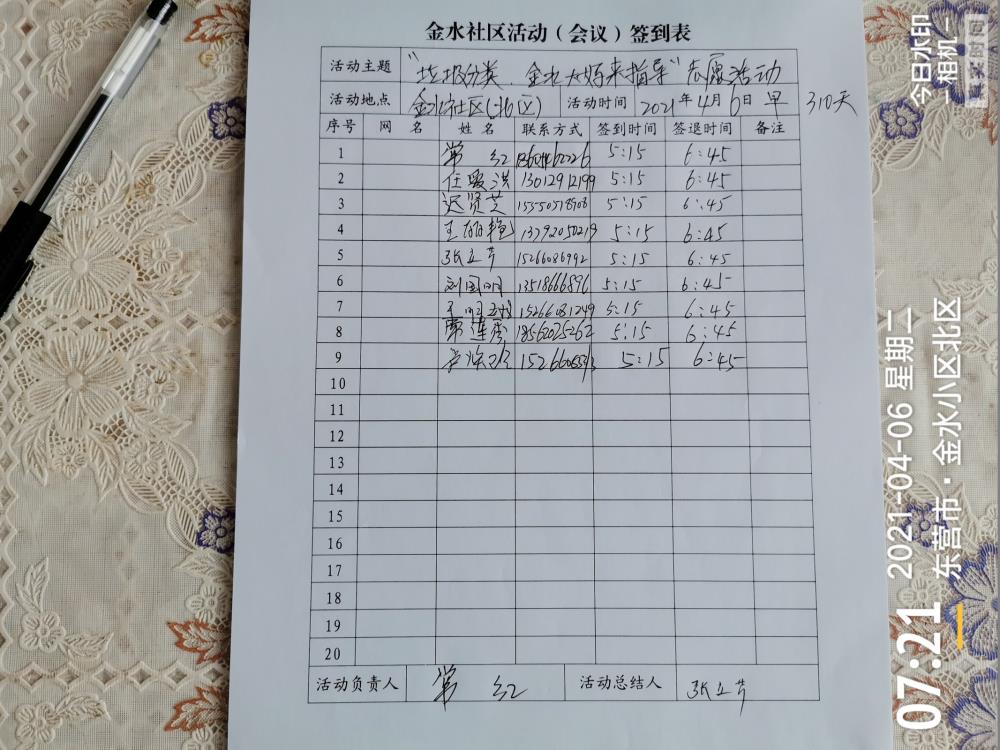 金水社区活动（会议）签到表
活动主题 "垃圾分类.金水大妈来指导"志愿活动
活动地点 金水社区(北区) 活动时间 2021年4月6日 早 310天
序号 网 名 姓 名 联系方式 签到时间 签退时间 备注
1 常 红 5:15 6:45
2 任爱洪 13012912199 5:15 6:45
3 迟贤芝 5:15 6:45
4 王丽艳 13792050219 5:15 6:45
5 张立芹 15266086992 5:15 6:45
6 刘国明 13518666896 5:15 6:45
7 15266081249 5:15 6:45
8 18562025262 5:15 6:45
9 5:15 6:45
10
11
12
13
14
15
16
17
18
19
20
活动负责人 常 红 活动总结人 张立芹
今日水印
相机
真实时间
07:21 2021-04-06 星期二
东营市·金水小区北区